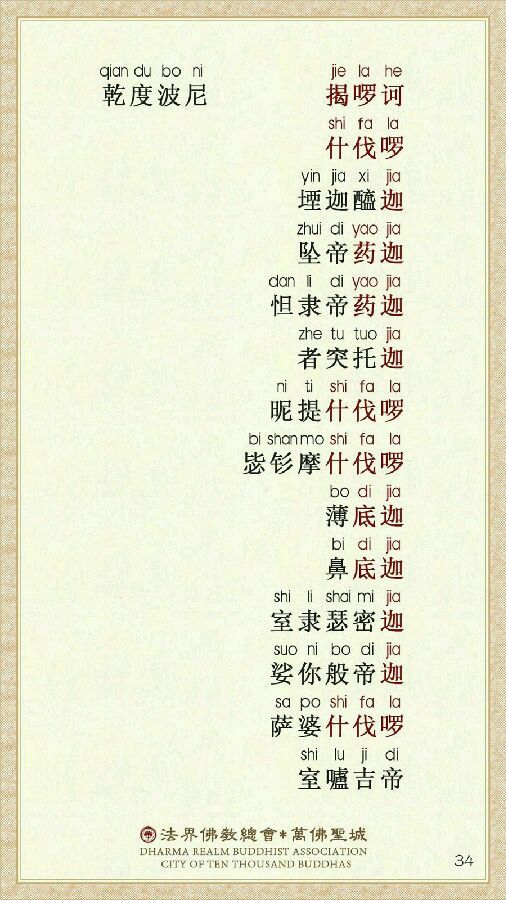 qian du bo ni jie la he
乾度波尼 揭啰诃
shi fa la
什伐啰
yin jia xi jia
堙迦醯迦
zhui di yao jia
坠帝药迦
dan li di yao jia
怛隶帝药迦
zhe tu tuo jia
者突托迦
ni ti shi fa la
昵提什伐啰
bi shan mo shi fa la
毖钐摩什伐啰
bo di jia
薄底迦
bi di jia
鼻底迦
shi li shai mi jia
室隶瑟密迦
suo ni bo di jia
娑你般帝迦
sa po shi fa la
萨婆什伐啰
shi lu ji di
室嚧吉帝
法界佛教總會*萬佛聖城
DHARMA REALM BUDDHIST ASSOCIATION
CITY OF TEN THOUSAND BUDDHAS
34